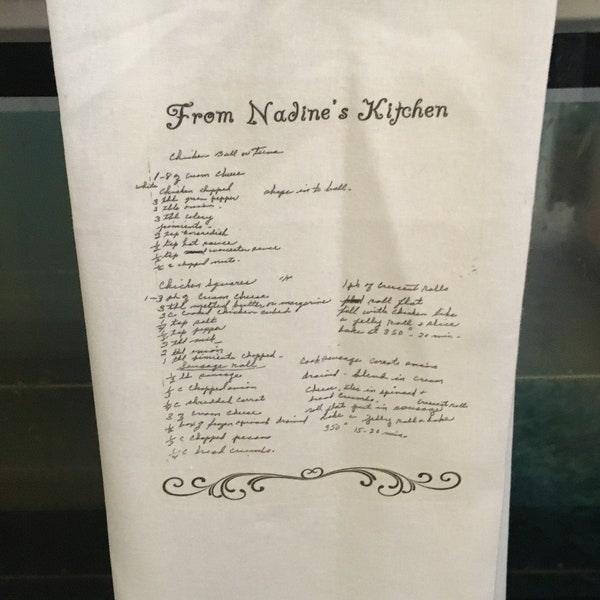 From Nadine's Kitchen
Chicken Ball w Tuna
1-8 z cream cheese
white chicken chopped
3 tbl green pepper
3 tbls onion
3 tbl celery
pimiento
2 tsp horseradish
½ tsp hot sauce
½ tsp worcester sauce
½ c chopped nuts.
shape in to ball.
Chicken Squares
1-3 pk of cream cheese
3 tbl melted butter or margarine
2 c cooked chicken cubed
¼ tsp salt
⅛ tsp pepper
2 tbl milk
2 tbl onion
1 tbl pimiento chopped
1 pk of crescent rolls
roll flat
fill with chicken like
a jelly roll & slice
bake at 350° - 20 min.
Sausage Roll
½ lb sausage
½ c chopped onion
½ c shredded carrot
3 z cream cheese
½ box of frozen spinach drained
½ c chopped pecans
¼ c bread crumbs.
Cook sausage carrots onions
drained - blend in cream
cheese, stir in spinach &
bread crumbs. crescent rolls
roll flat put in sausage
like a jelly roll & bake
350° 15-20 min.